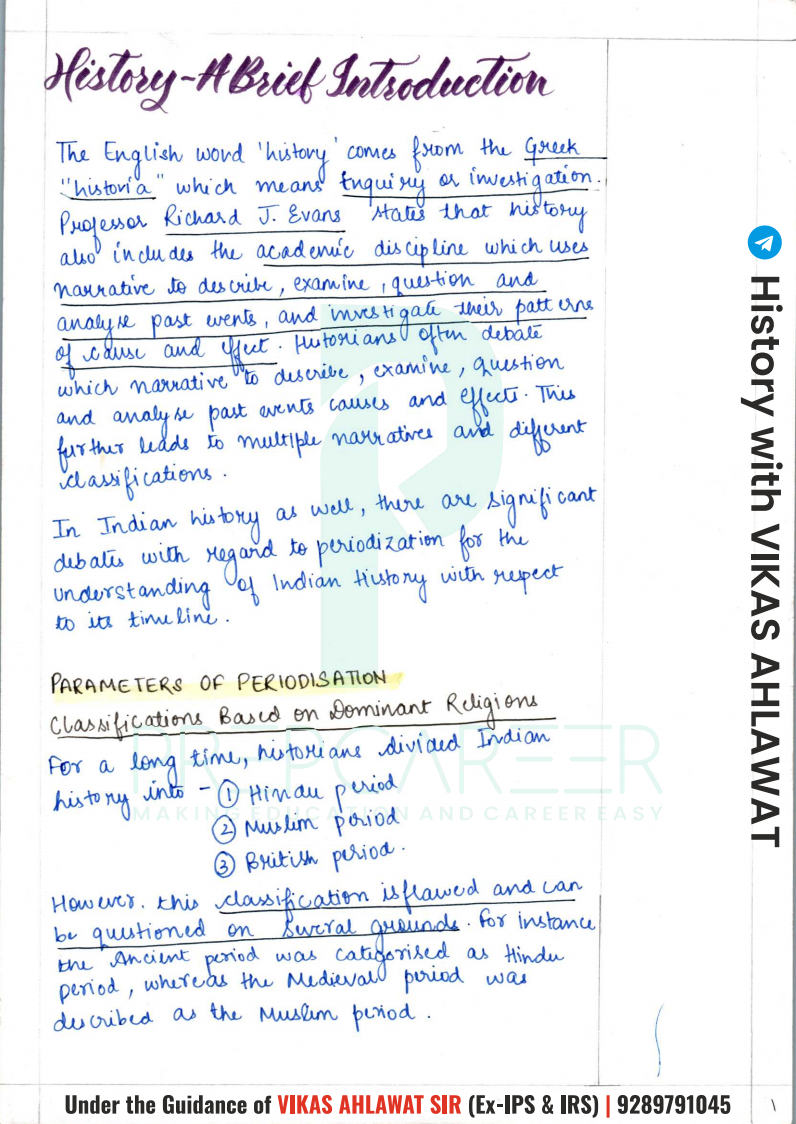 History - A Brief Introduction
The English word 'history' comes from the Greek
"historia" which means Enquiry or investigation.
Professor Richard J. Evans states that history
also includes the academic discipline which uses
narrative to describe, examine, question and
analyse past events, and investigate their patterns
of cause and effect. Historians often debate
which narrative to describe, examine, question
and analyse past events causes and effects. This
further leads to multiple narratives and different
classifications.
In Indian history as well, there are significant
debates with regard to periodization for the
understanding of Indian History with respect
to its timeline.
PARAMETERS OF PERIODISATION
Classifications Based on Dominant Religions
For a long time, historians divided Indian
history into - ① Hindu period
② Muslim period
③ British period.
However. this classification is flawed and can
be questioned on several grounds. For instance
the Ancient period was categorised as Hindu
period, whereas the Medieval period was
described as the Muslim period.
PREPCAREER
MAKING EDUCATION AND CAREER EASY
History with VIKAS AHLAWAT
Under the Guidance of VIKAS AHLAWAT SIR (Ex-IPS & IRS) | 9289791045
1